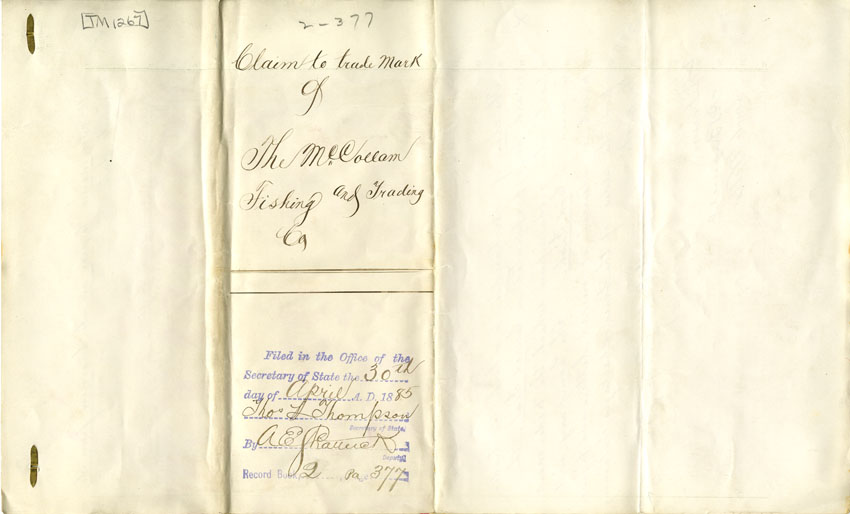 [TM 1267]
2-377
Claim to trade Mark
of
The McCollam
Fishing and Trading
Co
Filed in the Office of the
Secretary of State the 30th
day of April A. D. 1885
Thos L Thompson
Secretary of State.
By A E
Deputy
Record Book 2 Page 377